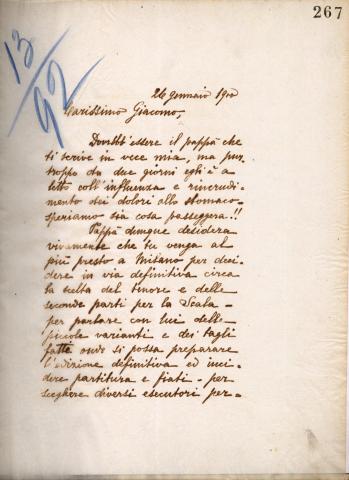 267
13/92
26 gennaio 1900
Carissimo Giacomo,
Dovrebb'essere il pappà che
ti scrive in vece mia, ma pur
troppo da due giorni egli è a
letto coll'influenza e rincrudi-
mento dei dolori allo stomaco -
speriamo sia cosa passeggera.!!
Pappà dunque desidera
vivamente che tu venga al
più presto a Milano per deci-
dere in via definitiva circa
la scelta del tenore e delle
seconde parti per la Scala -
per parlare con lui delle
piccole varianti e dei tagli
fatti onde si possa preparare
l'edizione definitiva ed inci-
dere partitura e fiati - per
scegliere diversi esecutori per -